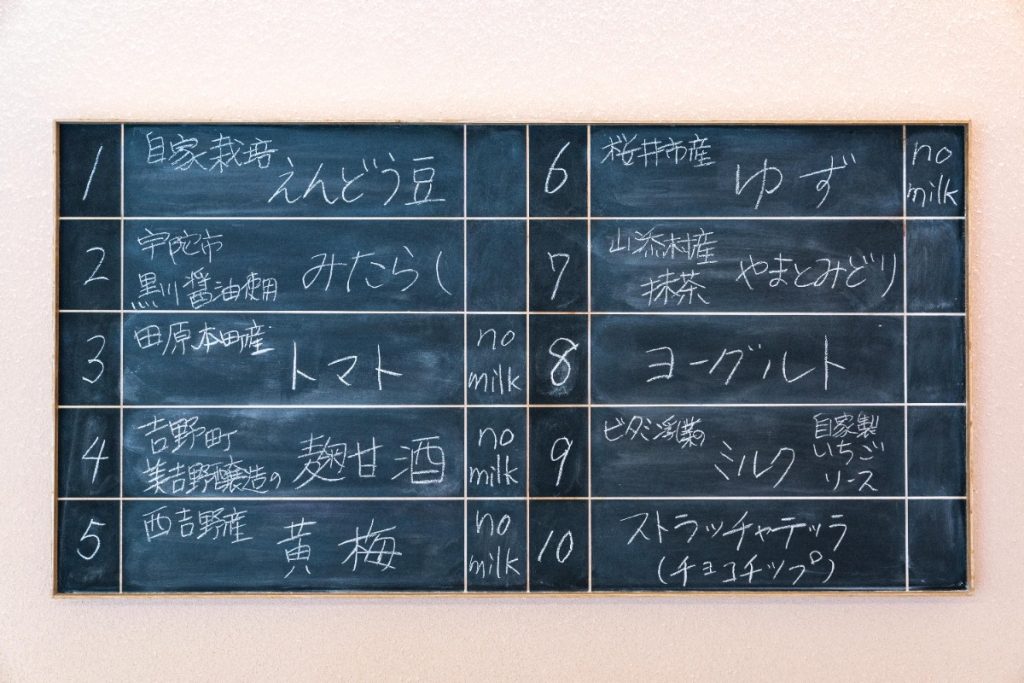 1
自家栽培
えんどう豆
2
宇陀市
黒川醤油使用
みたらし
3
田原本町産
トマト
no
milk
4
吉野町
美吉野醸造の
麹甘酒
no
milk
5
西吉野産
黄梅
no
milk
6
桜井市産
ゆず
no
milk
7
山添村産
抹茶
やまとみどり
8
ヨーグルト
9
ビタミン乳業の
ミルク
自家製
いちご
ソース
10
ストラッチャテッラ
(チョコチップ)